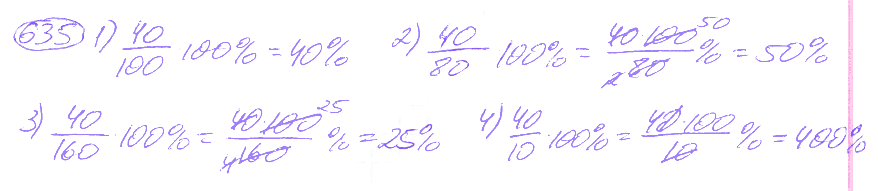 635 1) 40/100 · 100% = 40% 2) 40/80 · 100% = 40·100 50/2 80 % = 50%
3) 40/160 · 100% = 40·100 25/4 160 % = 25% 4) 40/10 · 100% = 40·100/10 % = 400%